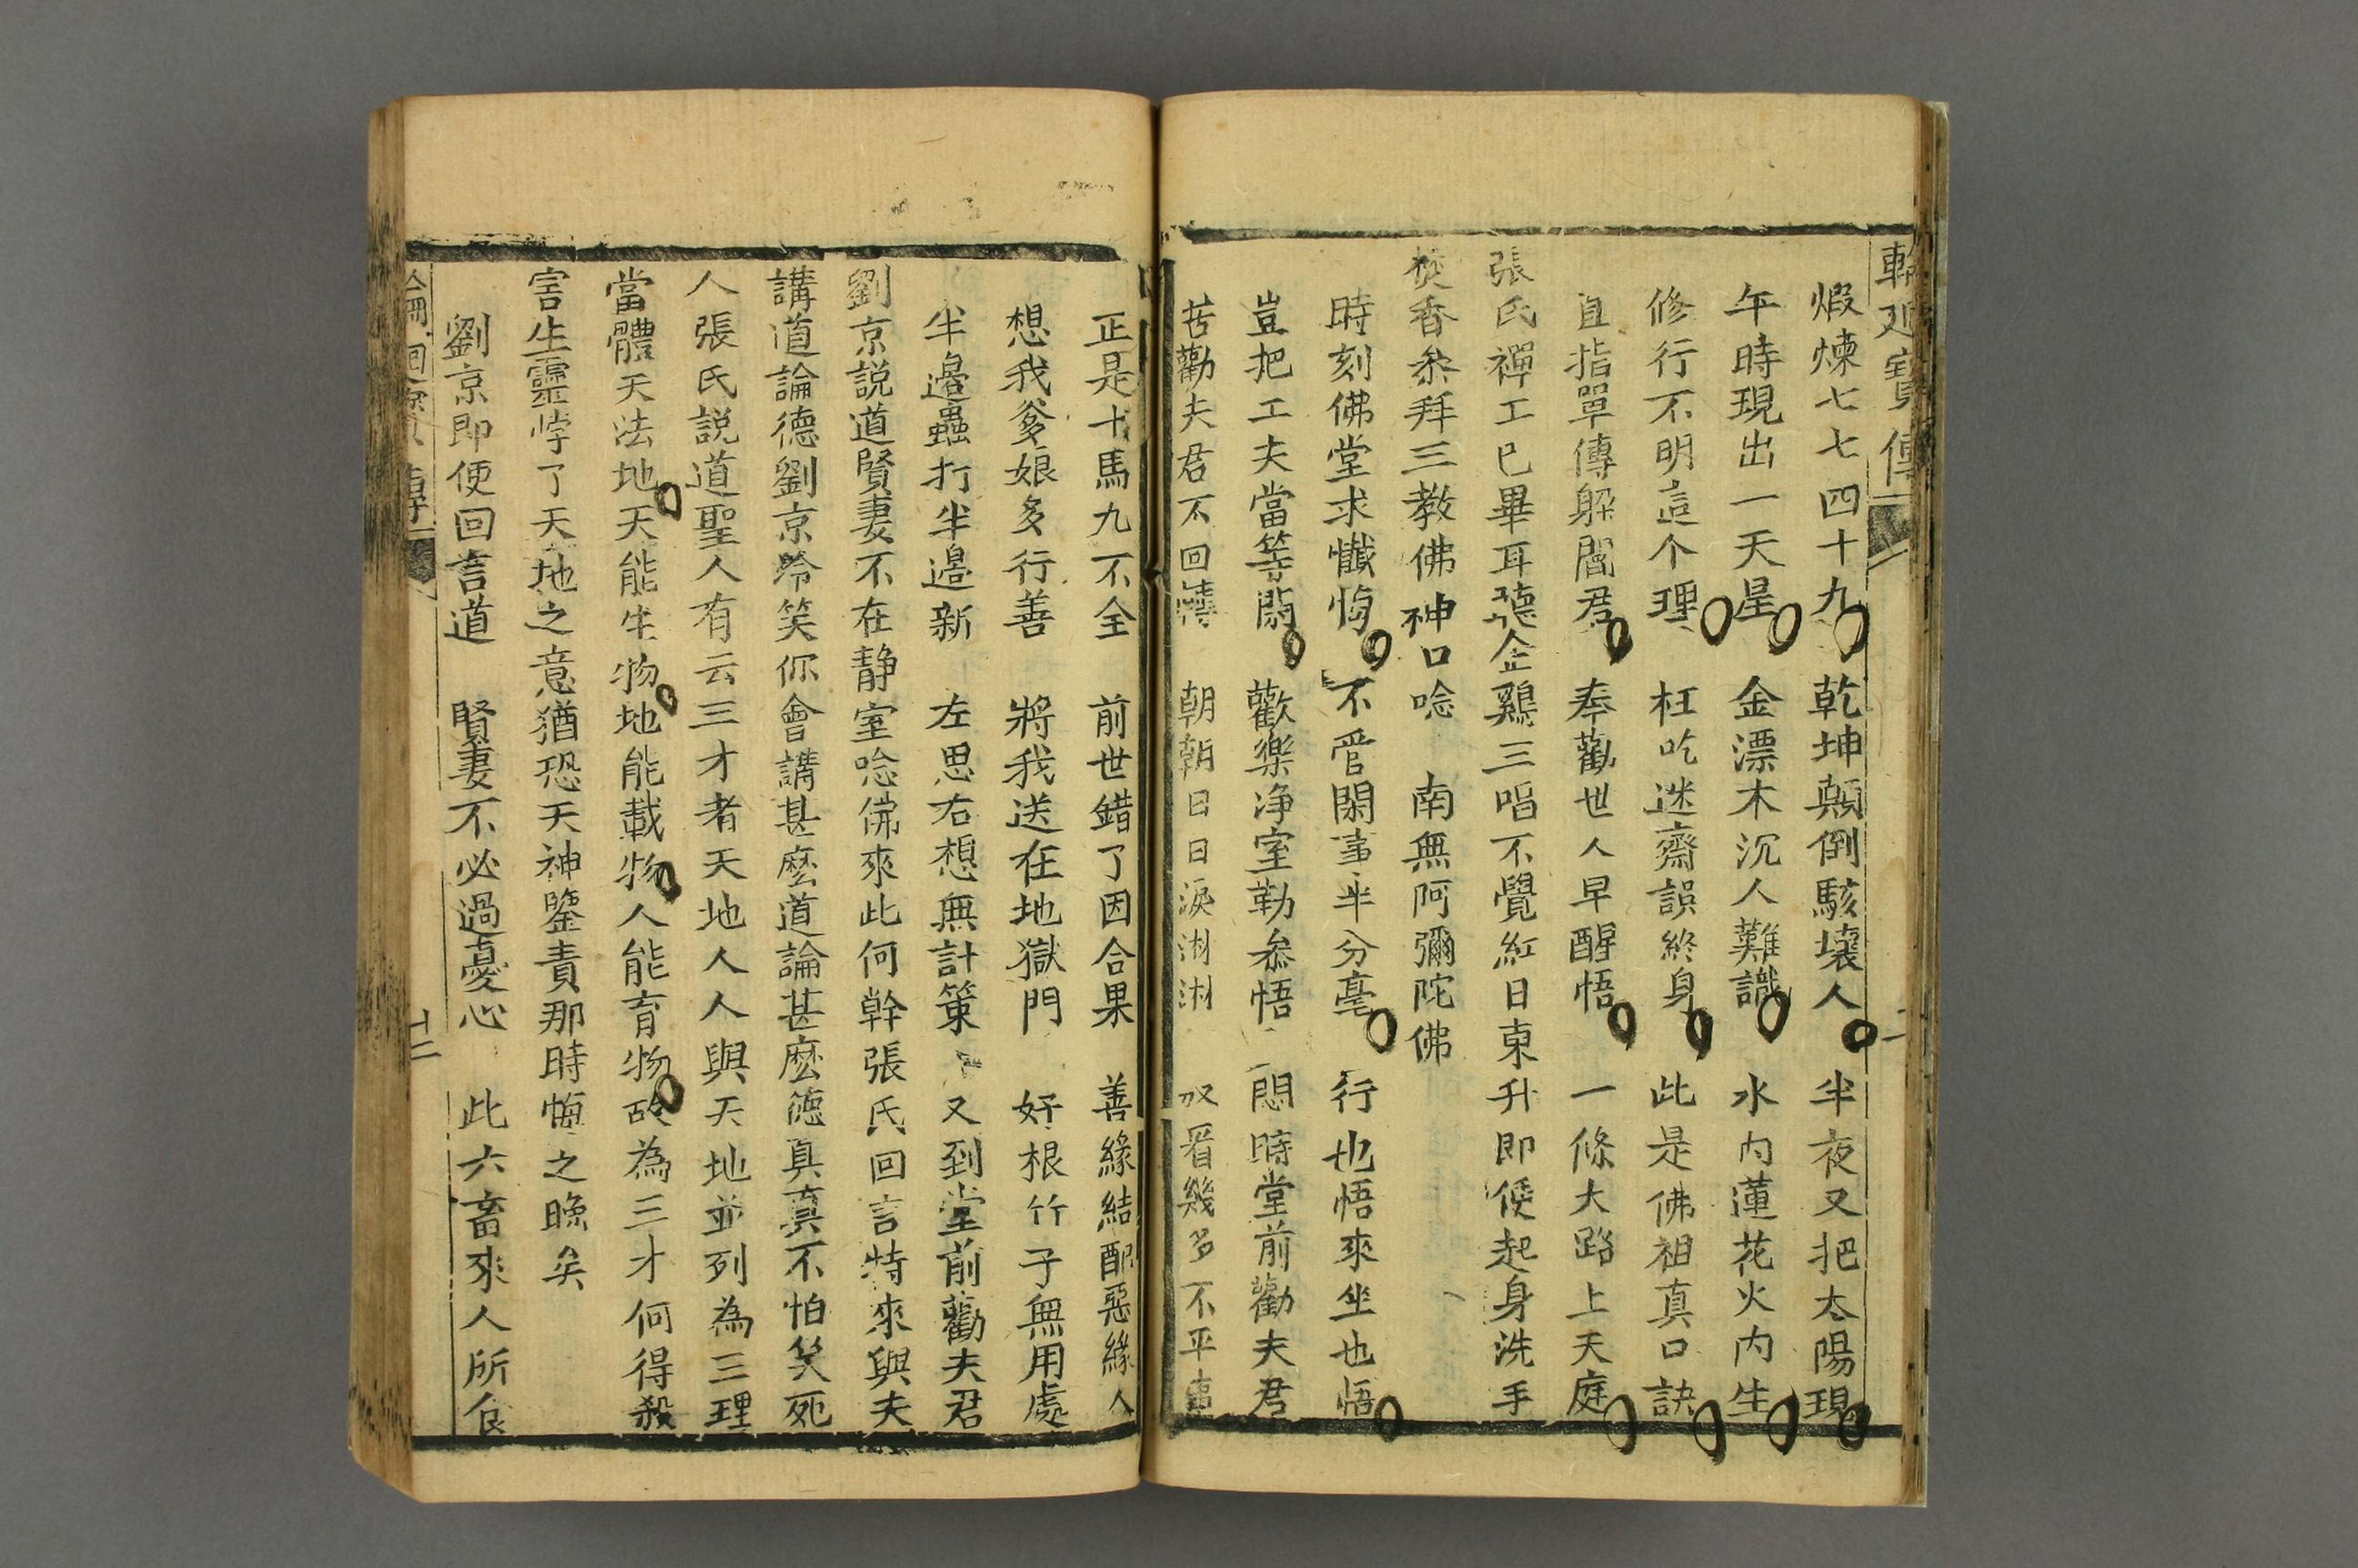 輪廻寶傳
煆煉七七四十九 乾坤顛倒駭壞人 半夜又把太陽現
午時現出一天星 金漂木沉人難識 水内蓮花火内生
修行不明這个理 枉吃迷齋誤終身 此是佛祖真口訣
直指單傳躲閻君 奉勸世人早醒悟 一條大路上天庭
張氏禪工巴畢耳聽金鷄三唱不覺紅日東升即便起身洗手
焚香叅拜三教佛神口唸 南無阿彌陀佛
時刻佛堂求懺悔 不管閑事半分毫 行也悟來坐也悟
豈把工夫當等閑 歡樂净室勤叅悟 悶時堂前勸夫君
苦勸夫君不回 朝朝日日淚淋淋 奴看幾多不平事
正是十馬九不全 前世錯了因合果 善緣結配惡緣人
想我爹娘多行善 將我送在地獄門 好根竹子無用處
半邊蟲打半邊新 左思右想無計策 又到堂前勸夫君
劉京説道賢妻不在静室唸佛來此何幹張氏回言特來與夫
講道論德劉京冷笑你會講甚麽道論甚麽德真真不怕笑死
人張氏説道聖人有云三才者天地人人與天地並列為三理
當體天法地天能生物地能載物人能育物故為三才何得殺
害生靈悖了天地之意猶恐天神鑒責那時悔之晚矣
劉京即便回言道 賢妻不必過憂心 此六畜來人所食
輪廻寶傳 十二